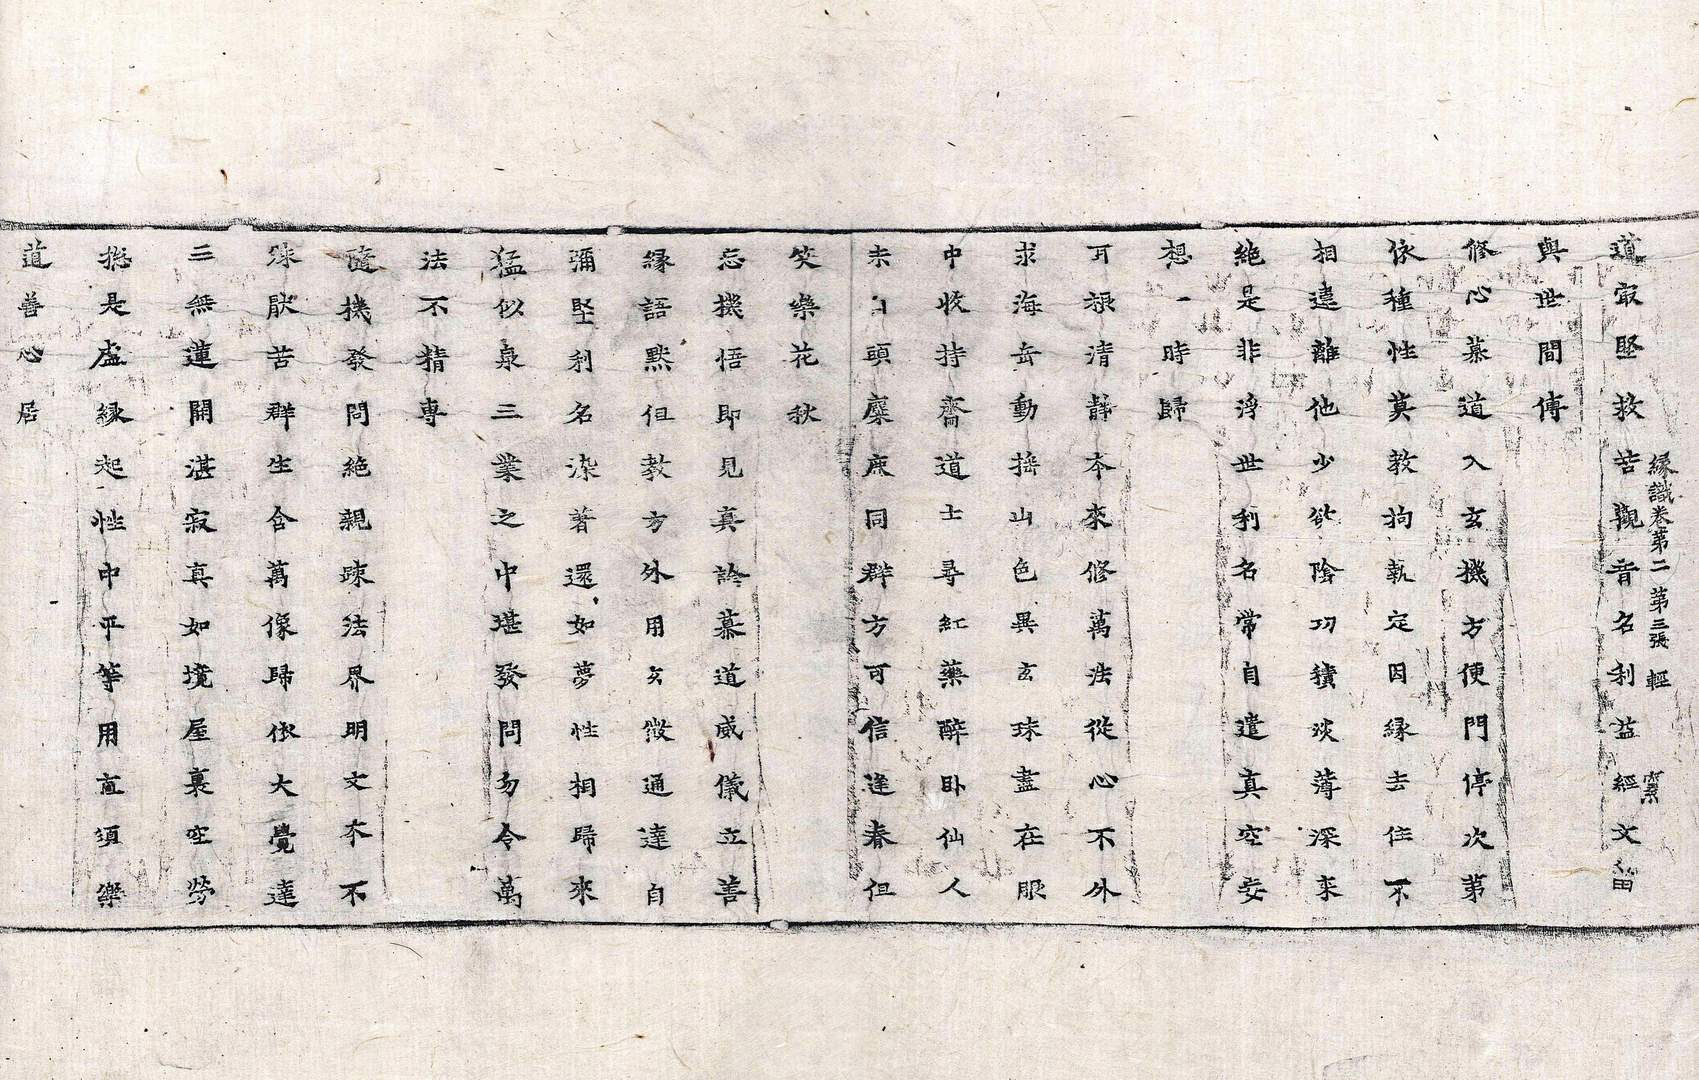 道㝡堅救苦觀音名利益經文留
緣識卷第二 第三張 輕
與世間傳
修心慕道入玄機方便門停次第
依種性莫教拘執定因緣去住不
相違離他少欲陰功積淡薄深來
絶是非浮世利名常自遣真空妄
想一時歸
可祿清靜夲來修萬法從心不外
求海岳動揺山色異玄珠盡在眼
中收持齋道士尋紅藥醉卧仙人
未白頭麋鹿同群方可信逢春但
笑樂花秋
忘機悟即見真詮慕道威儀立善
緣語默但教方外用玄微通達自
彌堅利名染著還如夢性相歸來
猛似泉三業之中堪發問勿令萬
法不精專
隨機發問絶親踈法界明文夲不
殊猒苦群生含萬像歸依大覺達
三無蓮開湛寂真如境屋裏空勞
揔是虛緣起性中平等用直須樂
道善心居